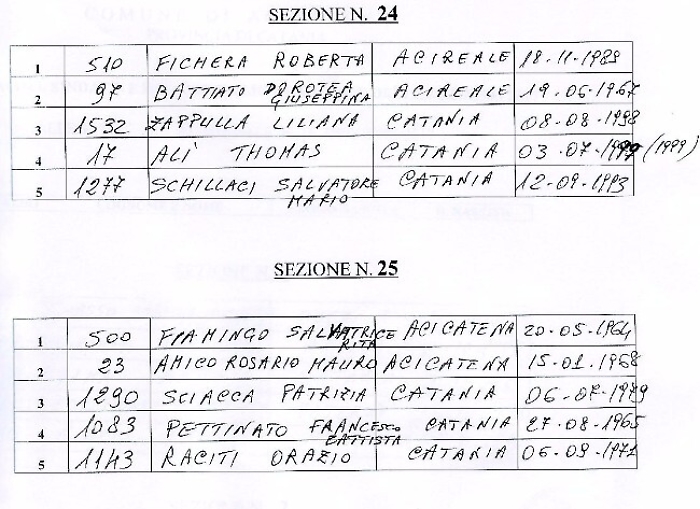 SEZIONE N. 24
1 510 FICHERA ROBERTA ACIREALE 18-11-1989
2 97 BATTIATO DOROTEA GIUSEPPINA ACIREALE 19-06-1967
3 1532 ZAPPULLA LILIANA CATANIA 08-08-1998
4 17 ALÌ THOMAS CATANIA 03-07-1999 (1999)
5 1277 SCHILLACI SALVATORE MARIO CATANIA 12-09-1993
SEZIONE N. 25
1 500 FIAMINGO SALVATRICE RITA ACICATENA 20-05-1964
2 23 AMICO ROSARIO MAURO ACICATENA 15-01-1968
3 1290 SCIACCA PATRIZIA CATANIA 06-07-1979
4 1083 PETTINATO FRANCESCO BATTISTA CATANIA 27-08-1965
5 1143 RACITI ORAZIO CATANIA 06-09-1971